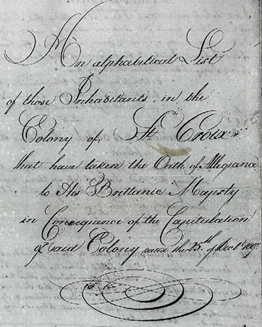 An alphabetical List
of those Inhabitants in the
Colony of St. Croix
that have taken the Oath of Allegiance
to His Brittanic Majesty
in Consequence of the Capitulation
of said Colony the 25th of